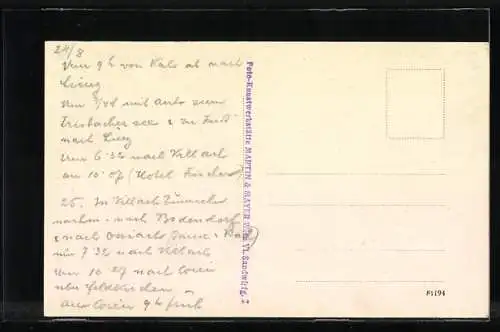 24/8
Um 9h von Kals ab nach
Lienz
Um 1/48 mit auto zum
Tristacher see & zu Fuß
nach Lienz
Um 6.32 nach Villach
an 10.07 (Hotel Fischer)
25. In Villach
nachm. nach Bodensdorf
& nach Ossiach
um 7.32 nach Villach
Um 10.27 nach Wien
über Feldkirchen
an Wien 9h früh
Foto-Kunstwerkstätte MARTIN & MAYER Wien VI. Sandwirtg. 7
81194